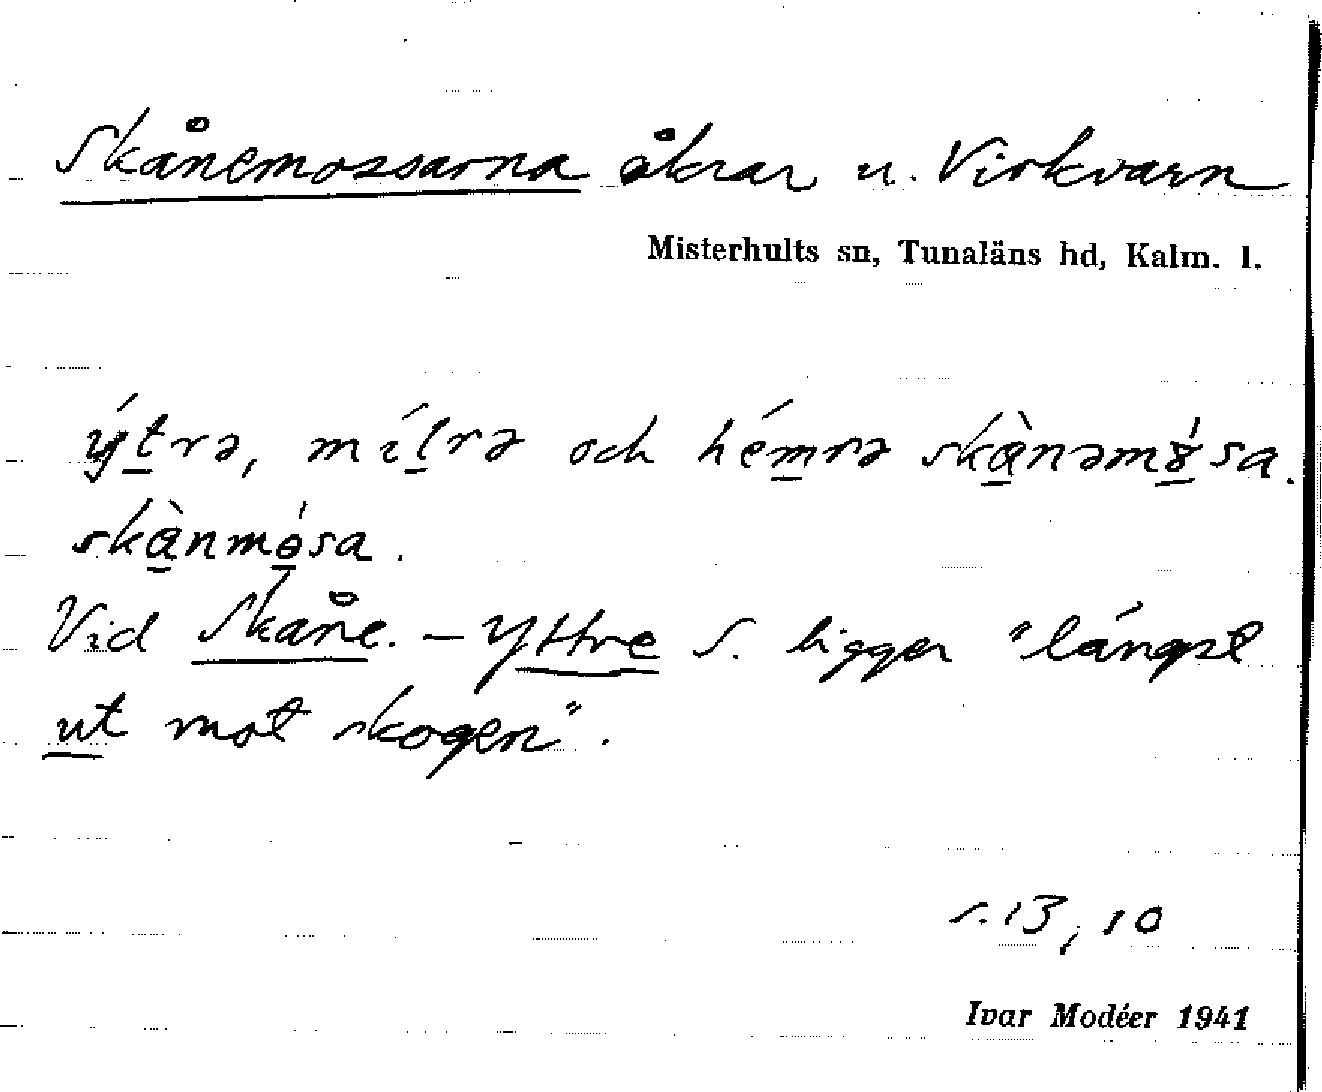 Skånemossarna åkrar u. Virkvarn
Misterhults sn, Tunaläns hd, Kalm. l.
ýt̲rə, mít̲rə och hém̲rə skà̲nəmɵ̲́sa.
skà̲nmɵ̲́sa.
Vid Skåne. – Yttre S. ligger "längst
ut mot skogen".
s. 13, 10
Ivar Modéer 1941